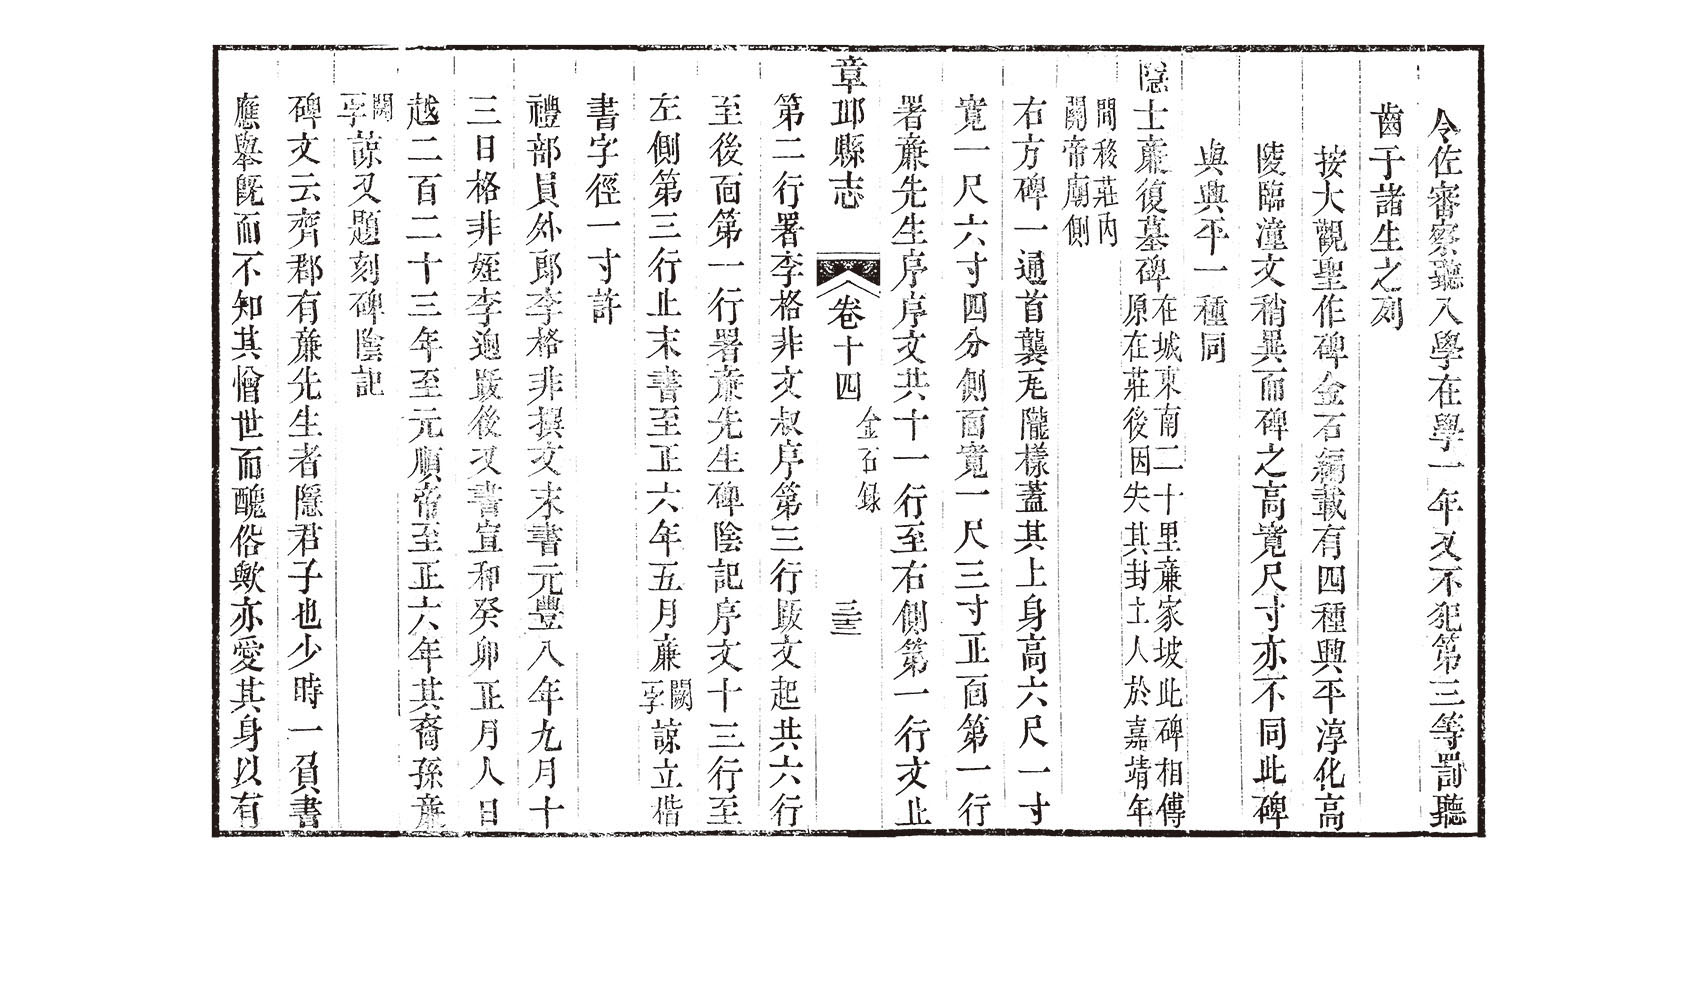 令佐審察聽入學在學一年又不犯第三等罰聽
齒于諸生之列
按大觀聖作碑金石編載有四種興平淳化高
陵臨潼文稍異而碑之高寬尺寸亦不同此碑
與興平一種同
隱士廉復墓碑在城東南二十里廉家坡此碑相傳
原在莊後因失其封土人於嘉靖年
間移莊內
關帝廟側
右方碑一通首襲瓦隴樣蓋其上身高六尺一寸
寬一尺六寸四分側面寬一尺三寸正面第一行
署廉先生序序文共十一行至右側第一行文止
章邱縣志 卷十四 金石録 三三
第二行署李格非文叔序第三行跋文起共六行
至後面第一行署廉先生碑陰記序文十三行至
左側第三行止末書至正六年五月廉闕一字諒立楷
書字徑一寸許
禮部員外郎李格非撰文末書元豐八年九月十
三日格非姪李逈跋後又書宣和癸卯正月人日
越二百二十三年至元順帝至正六年其裔孫廉
闕一字諒又題刻碑陰記
碑文云齊郡有廉先生者隱君子也少時一負書
應舉旣而不知其憎世而醜俗歟亦愛其身以有